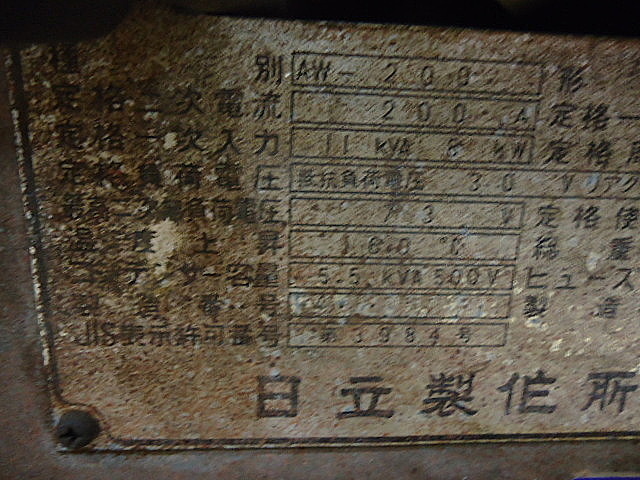 種 別 AW- 200 形
定格二次電流 200 A 定格一
定格一次入力 11 KVA 8 KW 定格周
定格負荷電圧 抵抗負荷電圧 30 V リアク
電圧 73 V 定格使
温度上昇 160 °C 総重
コンデンサー容量 5.5 KVA 500V ヒューズ
番号 製造
JIS表示許可番号 第 3984号
日立製作所